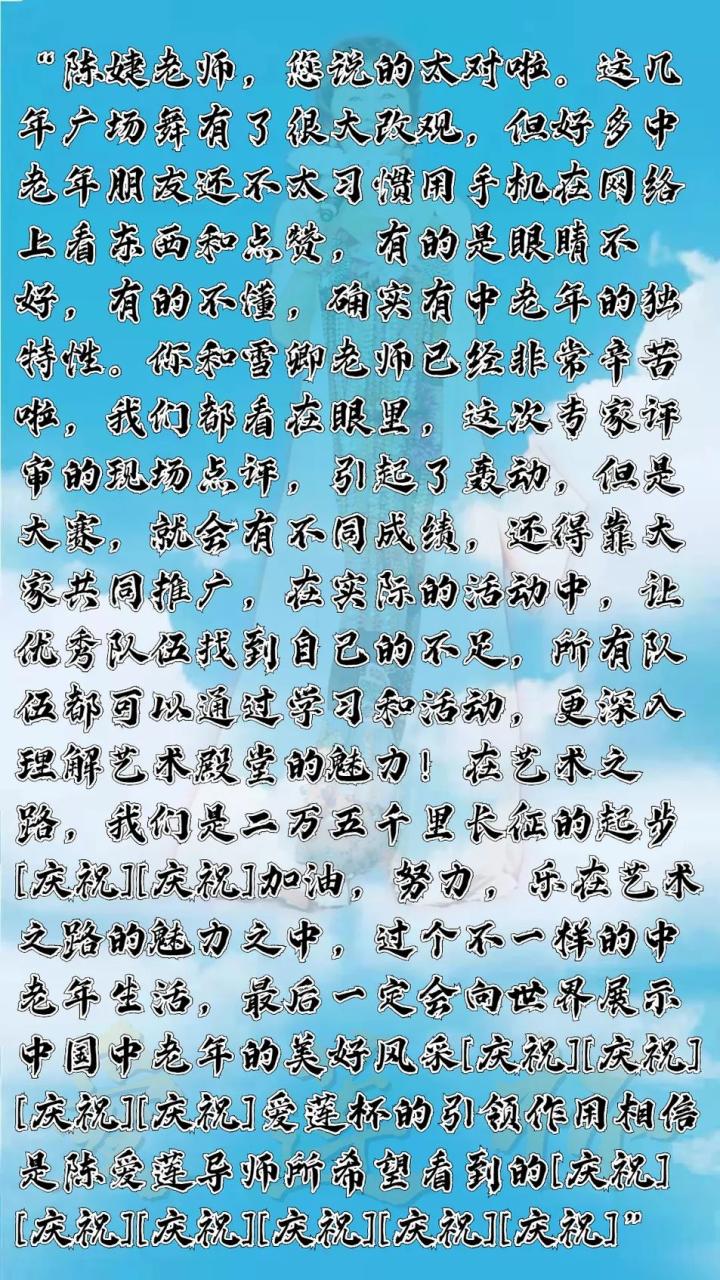 “陈婕老师，您说的太对啦。这几
年广场舞有了很大改观，但好多中
老年朋友还不太习惯用手机在网络
上看东西和点赞，有的是眼睛不
好，有的不懂，确实有中老年的独
特性。你和雪卿老师已经非常辛苦
啦，我们都看在眼里，这次专家评
审的现场点评，引起了轰动，但是
大赛，就会有不同成绩，还得靠大
家共同推广，在实际的活动中，让
优秀队伍找到自己的不足，所有队
伍都可以通过学习和活动，更深入
理解艺术殿堂的魅力！在艺术之
路，我们是二万五千里长征的起步
[庆祝][庆祝]加油，努力，乐在艺术
之路的魅力之中，过个不一样的中
老年生活，最后一定会向世界展示
中国中老年的美好风采[庆祝][庆祝]
[庆祝][庆祝]爱莲杯的引领作用相信
是陈爱莲导师所希望看到的[庆祝]
[庆祝][庆祝][庆祝][庆祝][庆祝]”